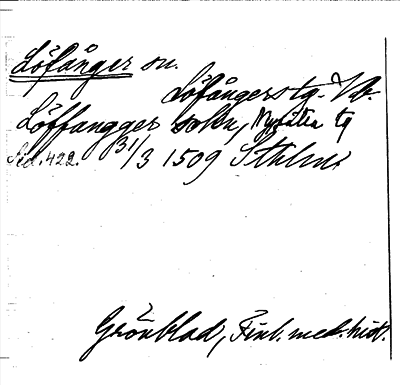 Löfånger sn.
Löfångerstg. Vb.
Löffangger sokn, Nysätra tg
Sid. 422. 31/3 1509 Sthlm.
Grönblad, Fink. med. hist.